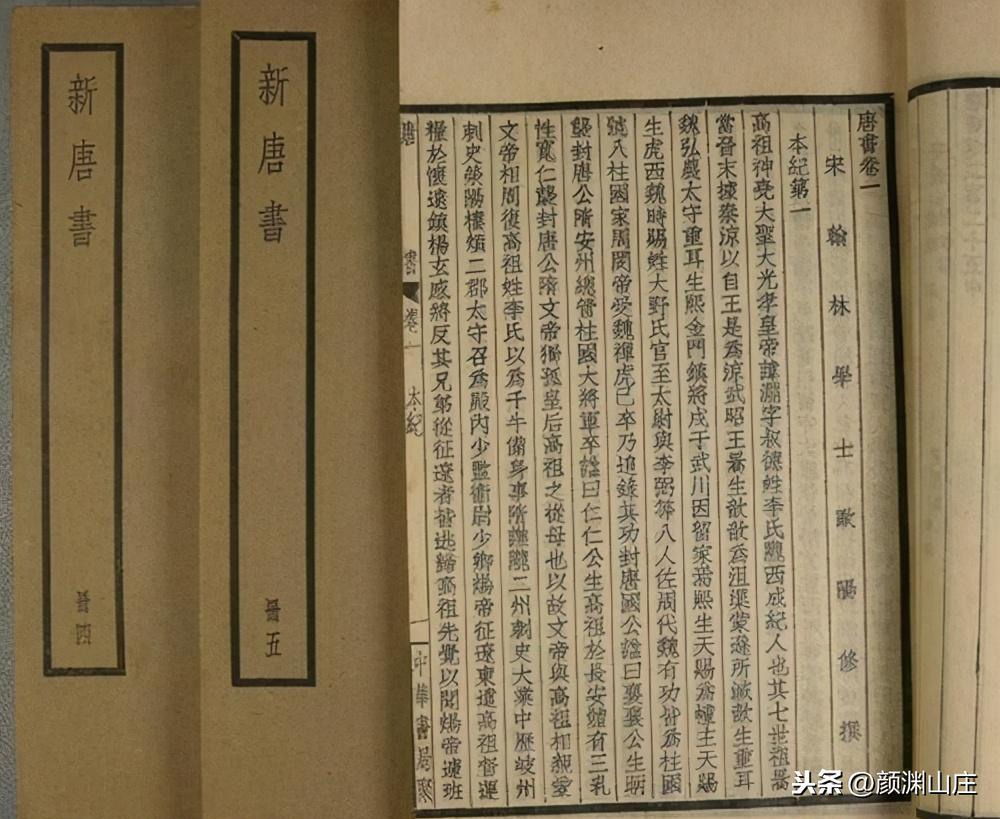 新唐書
冊四
新唐書
冊五
唐書卷一
宋翰林學士歐陽修撰
本紀第一
高祖神堯大聖大光孝皇帝諱淵字叔德姓李氏隴西成紀人也其七世祖暠
當晉末據秦涼以自王是為涼武昭王暠生歆歆為沮渠蒙遜所滅歆生重耳
魏弘農太守重耳生熙金門鎮將戍于武川因留家焉熙生天賜為幢主天賜
生虎西魏時賜姓大野氏官至太尉與李弼等八人佐周代魏有功皆為柱國
號八柱國家周閔帝受魏禪虎已卒乃追錄其功封唐國公諡曰襄襄公生昞
襲封唐公隋安州總管柱國大將軍卒諡曰仁仁公生高祖於長安體有三乳
性寬仁襲封唐公隋文帝獨孤皇后高祖之從母也以故文帝與高祖相親愛
文帝相周復高祖姓李氏以為千牛備身事隋譙隴二州刺史大業中歷岐州
刺史滎陽樓煩二郡太守召為殿內少監衛尉少卿煬帝征遼東遣高祖督運
糧於懷遠鎮楊玄感將反其兄弟從征遼者皆逃歸高祖先覺以聞煬帝遽班
書 卷一 本紀 中華書局聚
头条 @颜渊山庄